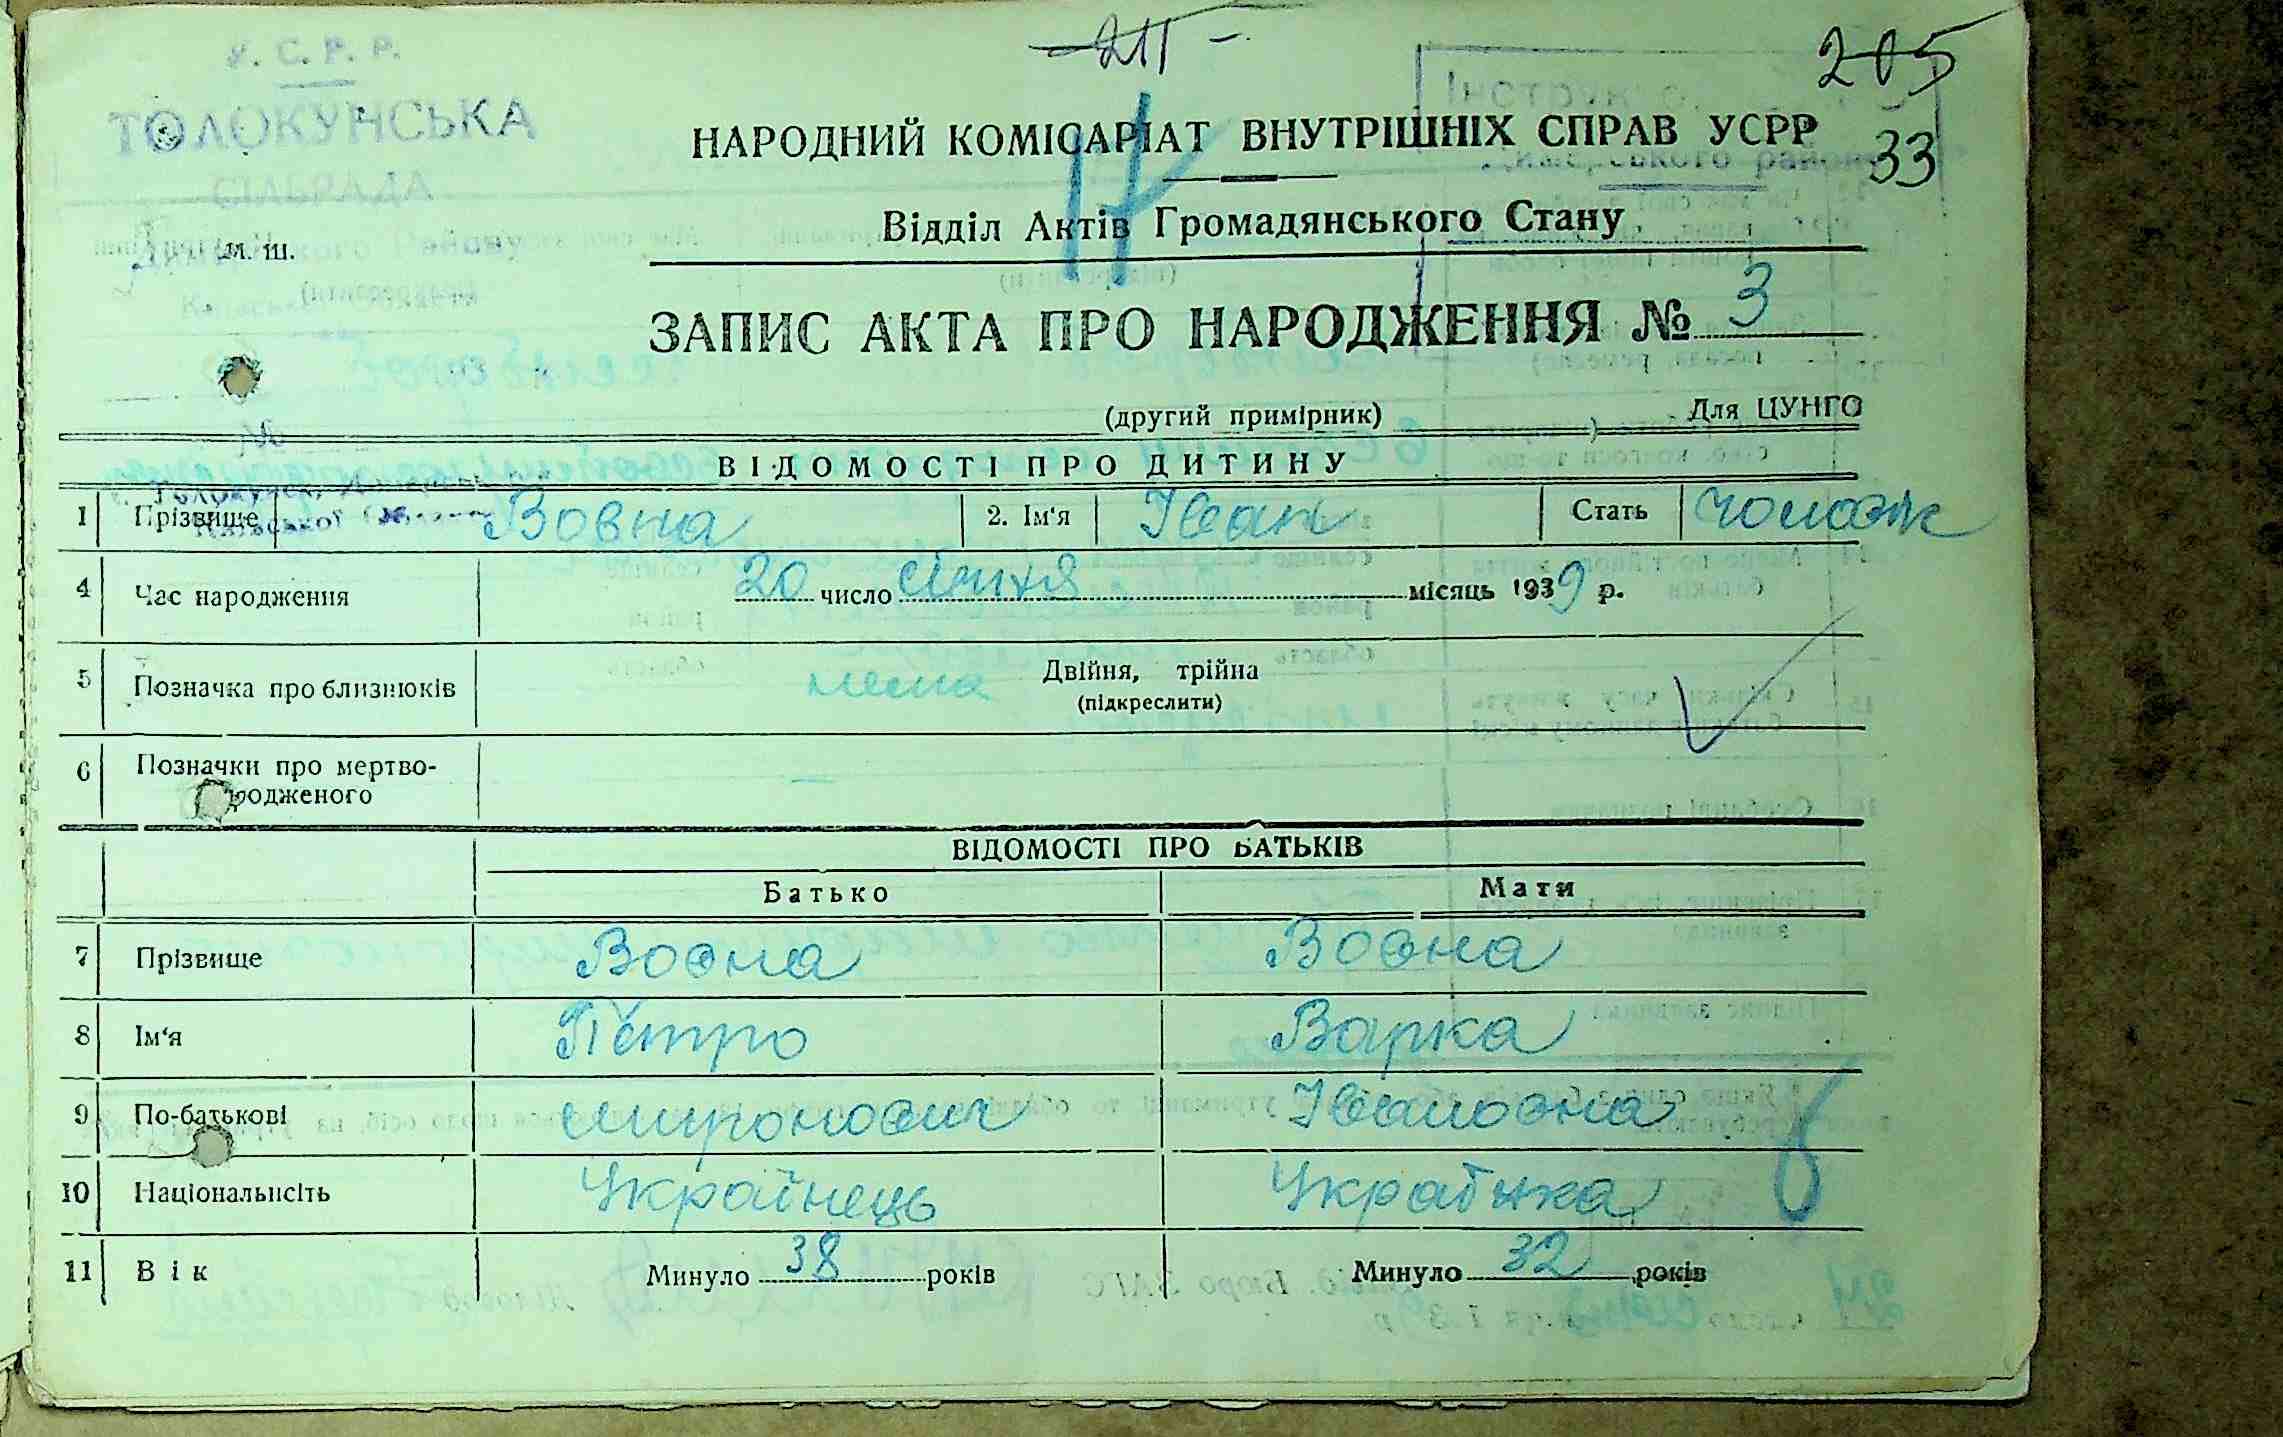 У. С. Р. Р.
ТОЛОКУНСЬКА
СІЛЬРАДА
211 -
205
33
НАРОДНИЙ КОМІСАРІАТ ВНУТРІШНІХ СПРАВ УСРР
Відділ Актів Громадянського Стану
м. ш.
ЗАПИС АКТА ПРО НАРОДЖЕННЯ № 3
(другий примірник) Для ЦУНГО
ВІДОМОСТІ ПРО ДИТИНУ
1 Прізвище Вовна 2. Ім'я Іван Стать чоловік
4 Час народження 20 число січня місяць 1939 р.
5 Позначка про близнюків нема Двійня, трійна
(підкреслити)
6 Позначки про мертво-
родженого
ВІДОМОСТІ ПРО БАТЬКІВ
Батько Мати
7 Прізвище Вовна Вовна
8 Ім'я Петро Варка
9 По-батькові Миронович Івановна
10 Національність Українець Українка
11 Вік Минуло 38 років Минуло 32 років